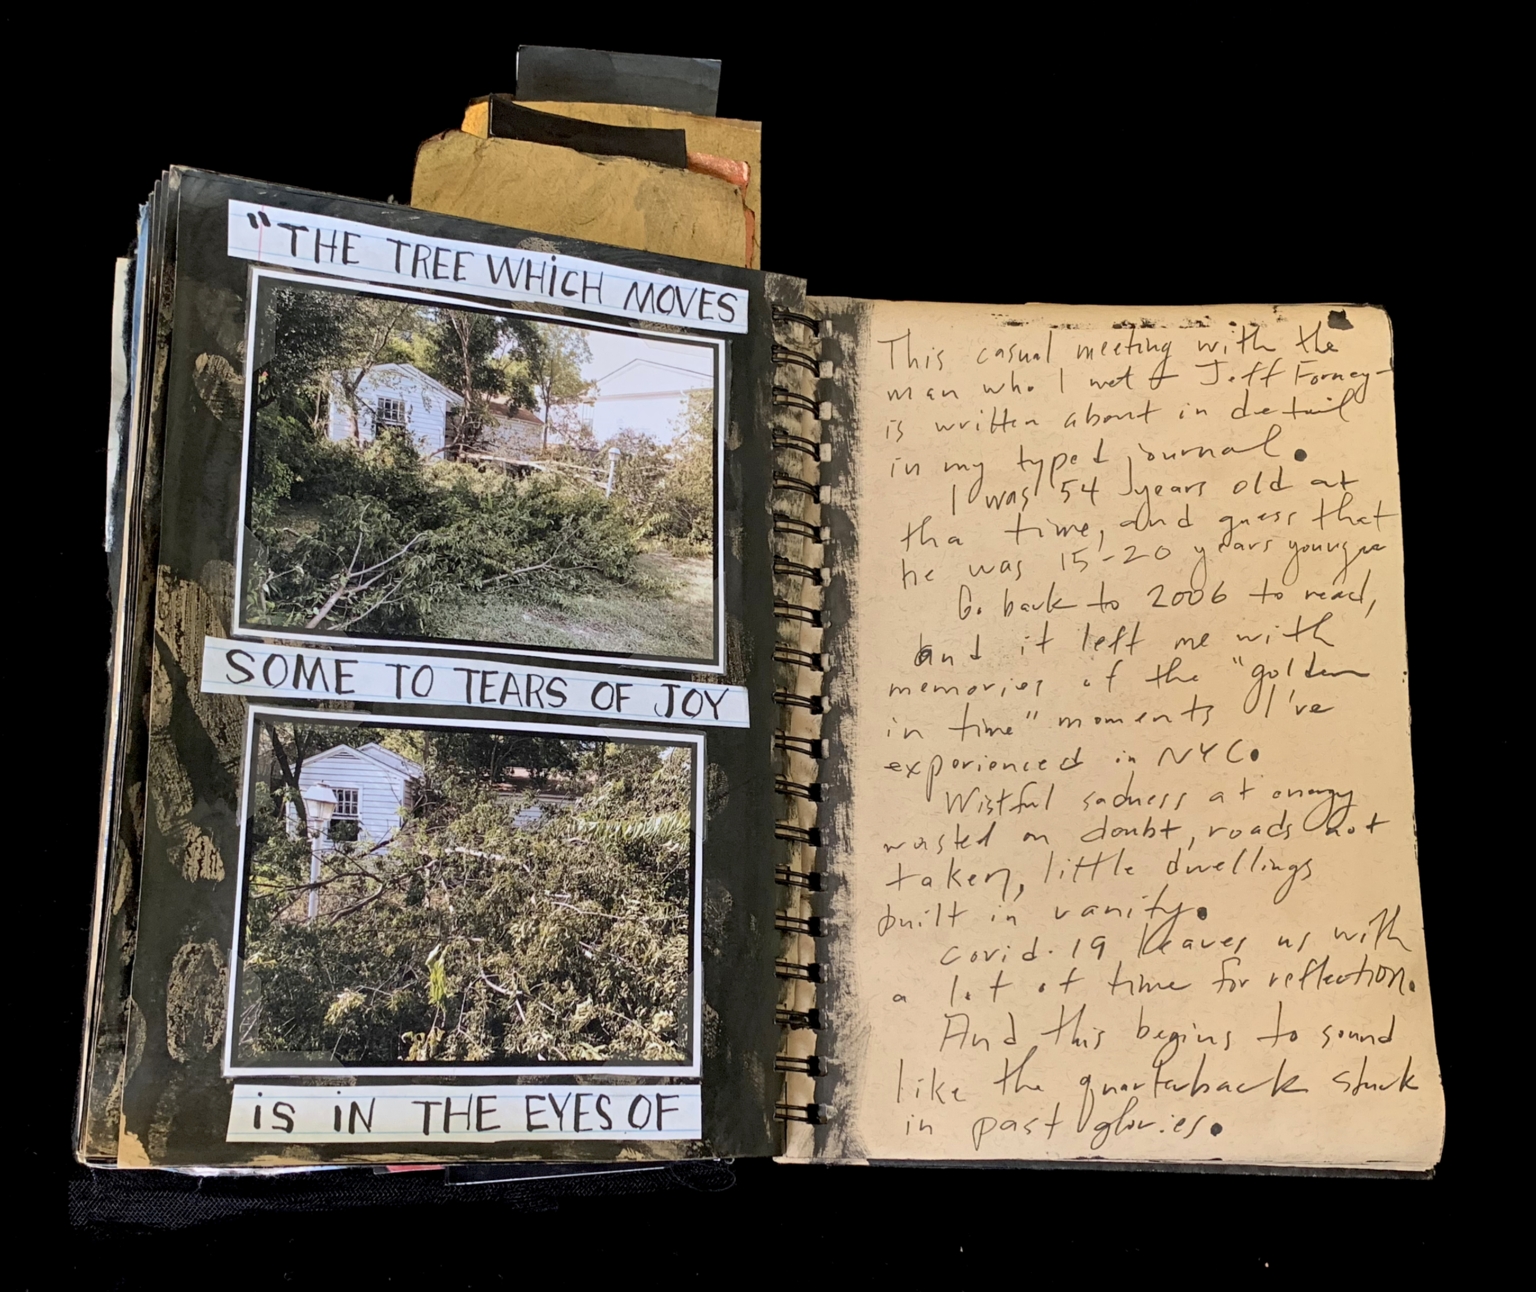 "THE TREE WHiCH MOVES
SOME TO TEARS OF JOY
iS iN THE EYES OF
This casual meeting with the
man who I met - Jeff Forney -
is written about in detail
in my typed journal.
I was 54 years old at
tha time, and guess that
he was 15-20 years younger
Go back to 2006 to read,
and it left me with
memories of the "golden
in time" moments I've
experienced in NYC.
Wistful sadness at energy
wasted on doubt, roads not
taken, little dwellings
built in vanity.
Covid-19 leaves us with
a lot of time for reflection.
And this begins to sound
like the quarterback stuck
in past glories.